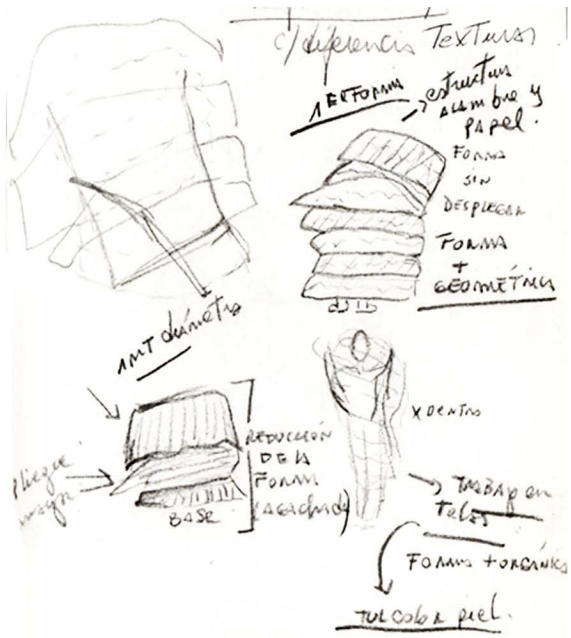 c/diferencis Texturas
1ER FORMA
estructura
alambre y
papel.
FORMA
SIN
DESPLEGAR
FORMA
+
GEOMÉTRICA
1MT diámetro
REDUCCIÓN
DE LA
FORMA
(AGACHADO)
pliegue
BASE
X DENTRO
TRABAJO en
Telas
FORMA + ORGÁNICA
TUL COLOR piel.